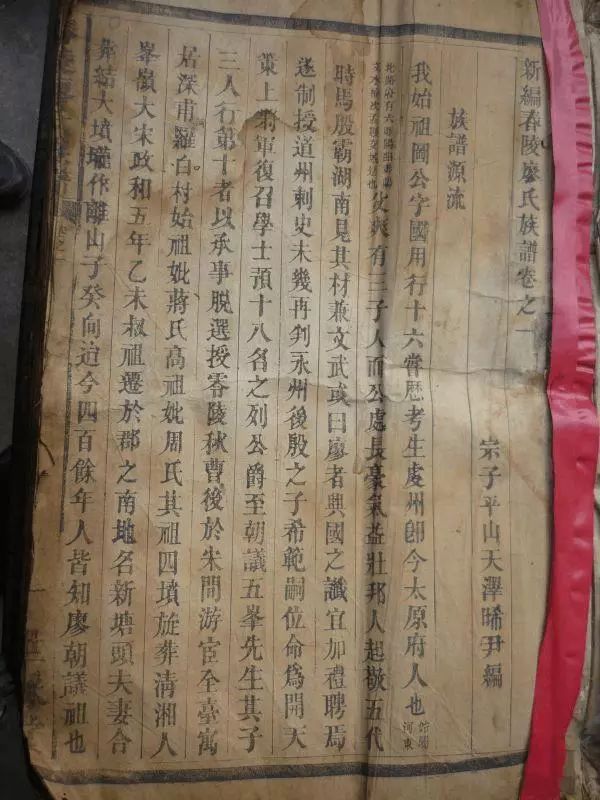 新編舂陵廖氏族譜卷之一
宗子平山天澤晞尹編
族譜源流
我始祖圖公字國用行十六嘗歷考生處州卽今太原府人也
父爽有三子人而公處長豪氣益壯邦人起敬五代
時馬殷霸湖南見其材兼文武或曰廖者興國之讖宜加禮聘焉
遂制授道州刺史未幾再判永州後殷之子希範嗣位命爲開天
策上將軍復召學士預十八名之列公爵至朝議五峯先生其子
三人行第十者以承事脫選授零陵秋曹後於宋間游宦至臺寓
居深甫羅白村始祖妣蔣氏高祖妣周氏其祖四墳旋葬清湘人
峯嶺大宋政和五年乙未叔祖遷於郡之南地名新塘頭夫妻合
葬結大墳瓏作離山子癸向迨今四百餘年人皆知廖朝議祖也